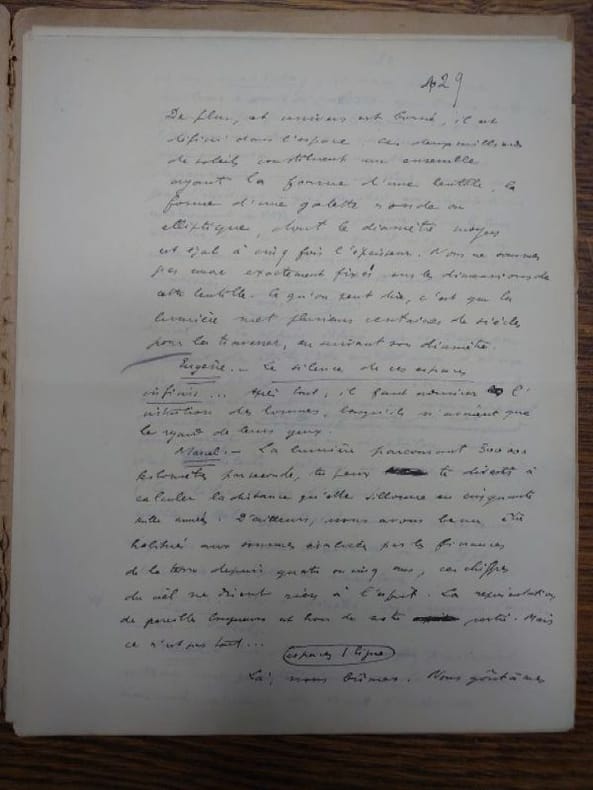 29
De plus, cet univers est borné, il est
défini dans l'espace. Ces deux milliards
de soleils constituent un ensemble
ayant la forme d'une lentille, la
forme d'une galette ronde ou
elliptique, dont le diamètre moyen
est égal à cinq fois l'épaisseur. Nous ne sommes
pas encore exactement fixés sur les dimensions de
cette lentille. Ce qu'on peut dire, c'est que la
lumière met plusieurs centaines de siècles
pour la traverser, en suivant son diamètre.
Eugène. — Le silence de ces espaces
infinis... Après tout, il faut admirer l'
intuition des hommes, lorsqu'ils n'avaient que
le regard de leurs yeux.
Marcel. — La lumière parcourant 300 000
kilomètres par seconde, tu peux te divertir à
calculer la distance qu'elle sillonne en cinquante
mille années. D'ailleurs, nous avons beau être
habitués aux sommes par les finances
de la terre depuis quatre ou cinq ans, ces chiffres
du ciel ne disent rien à l'esprit. La représentation
de pareilles longueurs est hors de notre portée. Mais
ce n'est pas tout...
espaces 1 ligne
Là, nous bûmes. Nous goûtâmes